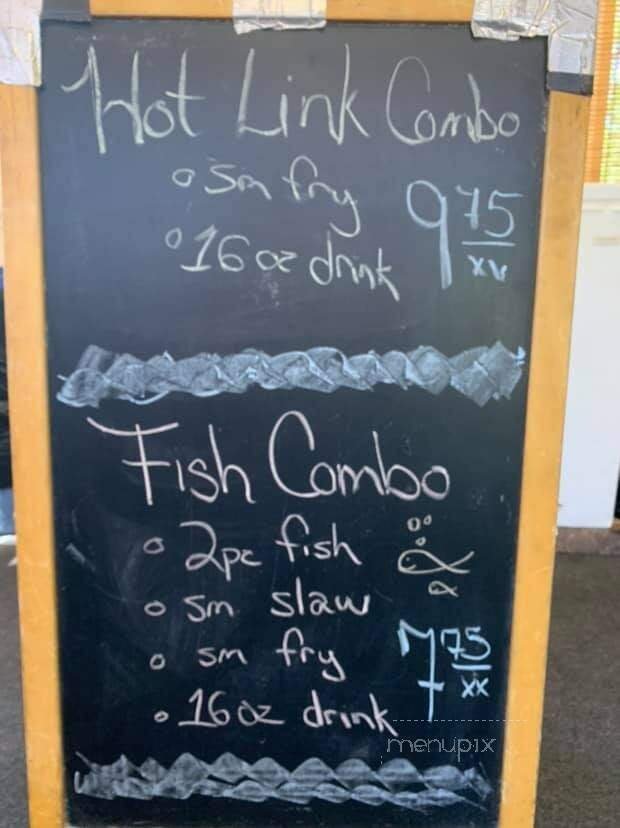 Hot Link Combo
sm fry
16 oz drink
9 75
xx
Fish Combo
2pc fish
sm slaw
sm fry
16 oz drink
7 75
xx
menupix